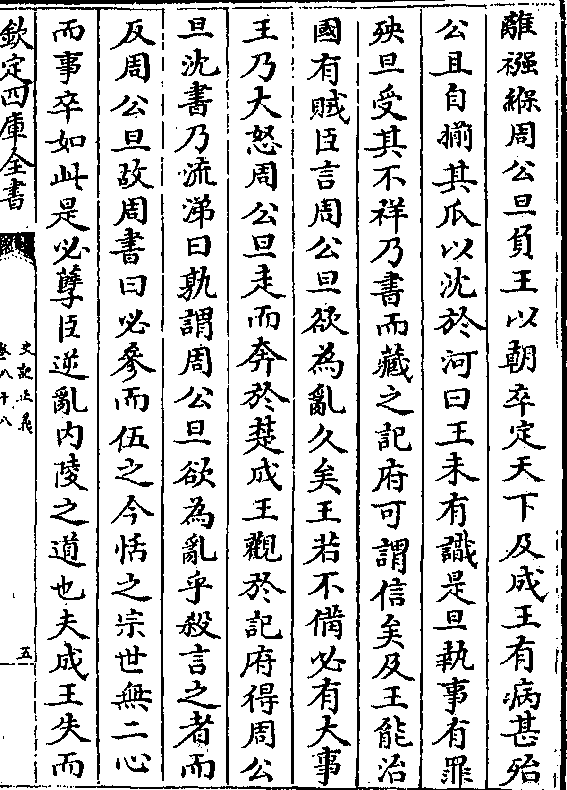 離襁緥周公旦負王以朝卒定天下及成王有病甚殆
公旦自揃其爪以沈於河曰王未有識是旦執事有罪
殃旦受其不祥乃書而藏之記府可謂信矣及王能治
國有賊臣言周公旦欲為亂久矣王若不備必有大事
王乃大怒周公旦走而奔於楚成王觀於記府得周公
旦沈書乃流涕曰孰謂周公旦欲為亂乎殺言之者而
反周公旦故周書曰必參而伍之今恬之宗世無二心
而事卒如此是必孽臣逆亂內陵之道也夫成王失而
欽定四庫全書
史記正義
卷八十八
五